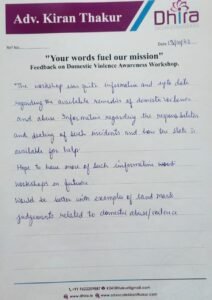 Adv. Kiran Thakur
Dhira
Ref No.
Date
"Your words fuel our mission"
Feedback on Domestic Violence Awareness Workshop.
"The workshop was quite informative and upto date
regarding the available remedies of domestic violence
and abuse. Information regarding the responsibilities
and dealing of such incidents and how the state is
available for help.
Hope to have more of such information
workshops in future
Would be better with examples of land mark
judgements related to domestic abuse/violence